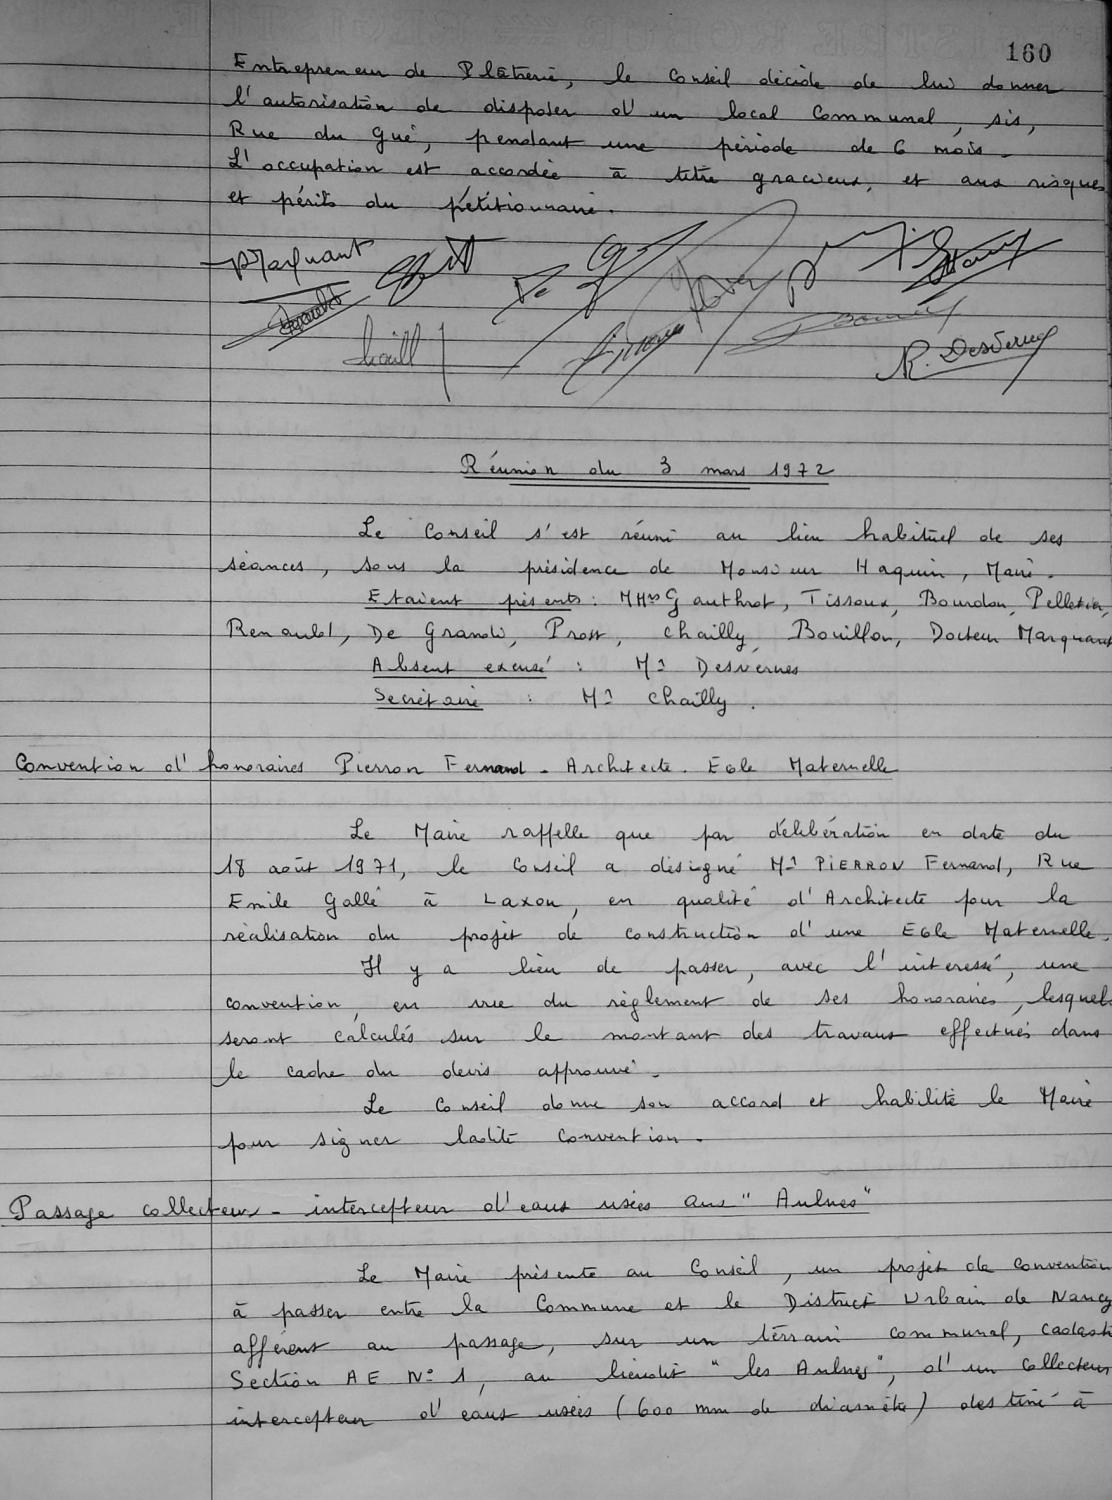 160
Entrepreneur de Plâtrerie, le Conseil décide de lui donner
l'autorisation de disposer d'un local Communal, sis,
Rue du Gué, pendant une période de 6 mois.
L'occupation est accordée à titre gracieux, et aux risques
et périls du pétitionnaire.
R. Desvernes
Réunion du 3 mars 1972
Le Conseil s'est réuni au lieu habituel de ses
séances, sous la présidence de Monsieur Haquin, Maire.
Etaient présents : MMrs Gauthrot, Tissoux, Bourdon, Pelletier,
Renauld, De Grandi, Prost, Chailly, Bouillon, Docteur Marquant
Absent excusé : Mr Desvernes
Secrétaire : Mr Chailly.
Convention d'honoraires Pierron Fernand - Architecte. Ecole Maternelle
Le Maire rappelle que par délibération en date du
18 août 1971, le Conseil a désigné Mr PIERRON Fernand, Rue
Emile Gallé à Laxou, en qualité d'Architecte pour la
réalisation du projet de construction d'une Ecole Maternelle.
Il y a lieu de passer, avec l'intéressé, une
convention, en vue du règlement de ses honoraires, lesquels
seront calculés sur le montant des travaux effectués dans
le cadre du devis approuvé.
Le Conseil donne son accord et habilite le Maire
pour signer ladite convention.
Passage collecteur - intercepteur d'eaux usées aux "Aulnes"
Le Maire présente au Conseil, un projet de convention
à passer entre la Commune et le District Urbain de Nancy
afférent au passage, sur un terrain communal, cadast
Section AE N° 1, au lieudit "les Aulnes", d'un collecteur
intercepteur d'eaux usées (600 mm de diamètre) destiné à